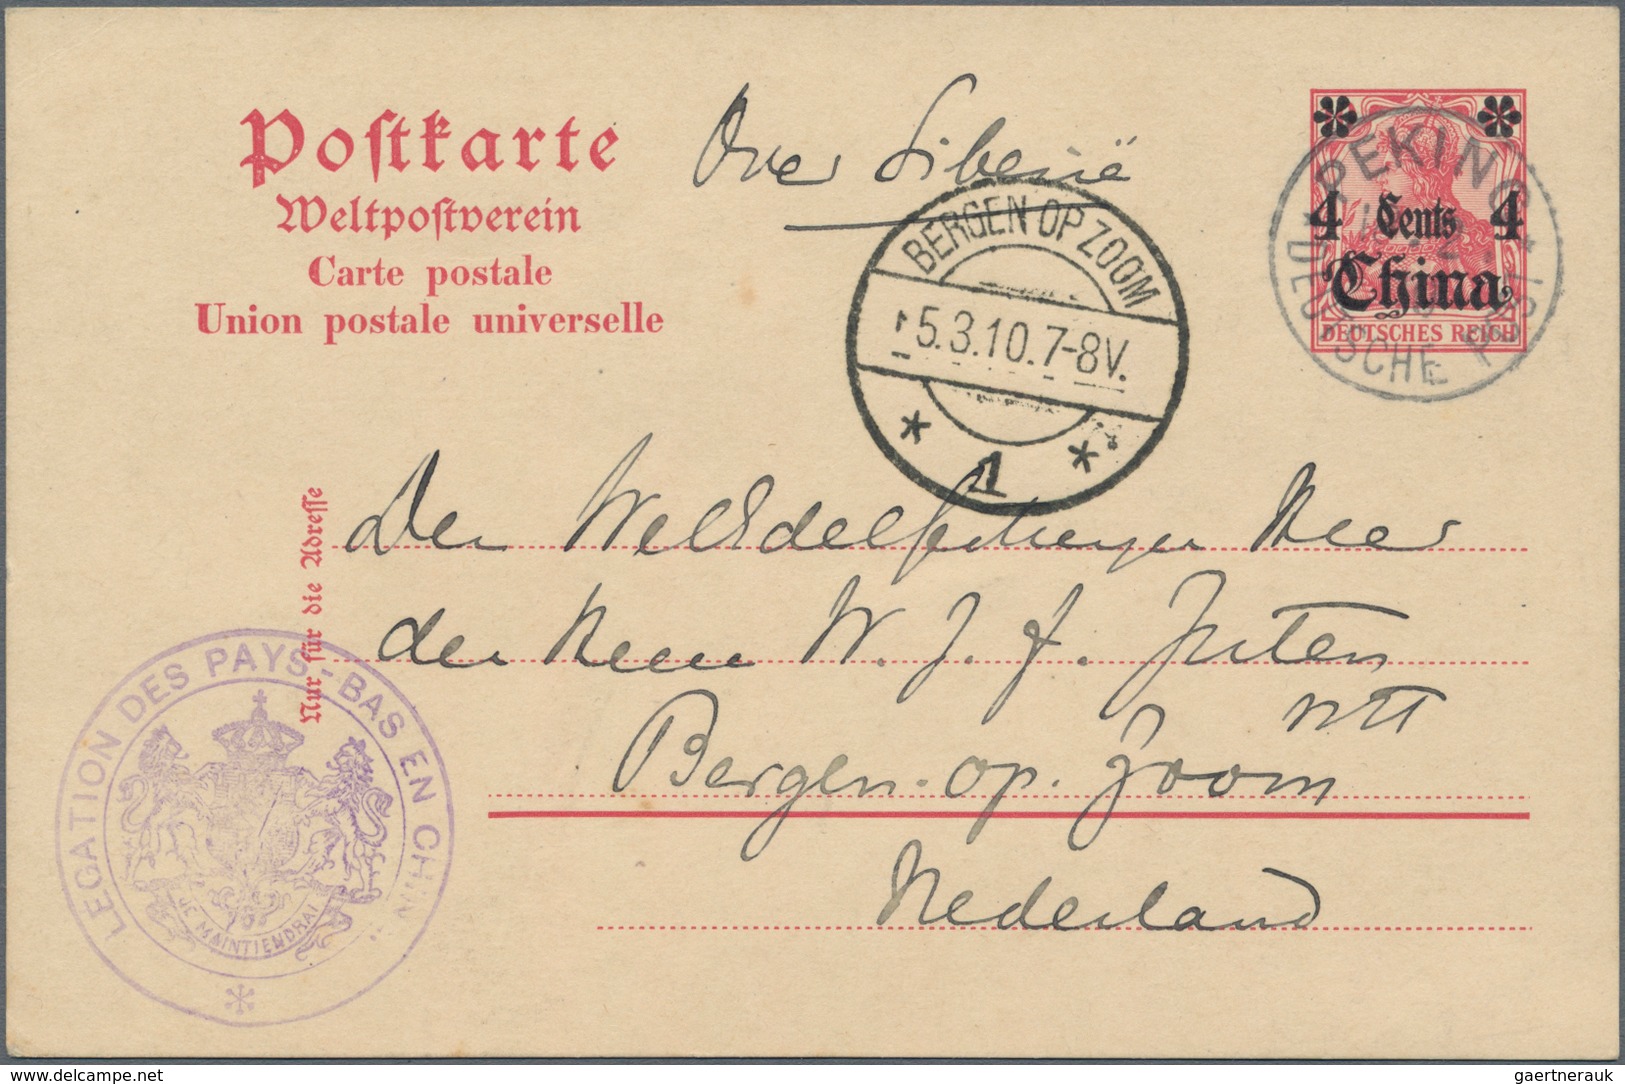 Postkarte
Weltpostverein
Carte postale
Union postale universelle
Over Siberië
4 Cents 4
China
DEUTSCHES REICH
PEKING
DEUTSCHE POST
BERGEN OP ZOOM
5.3.10.7-8V.
1
Nur für die Adresse
Den WelEdelgestrengen Heer
den Heer W. J. F. Juten
Bergen-op-Zoom
Nederland
LEGATION DES PAYS-BAS EN CHIN
JE MAINTIENDRAI
www.delcampe.net
gaertnerauk